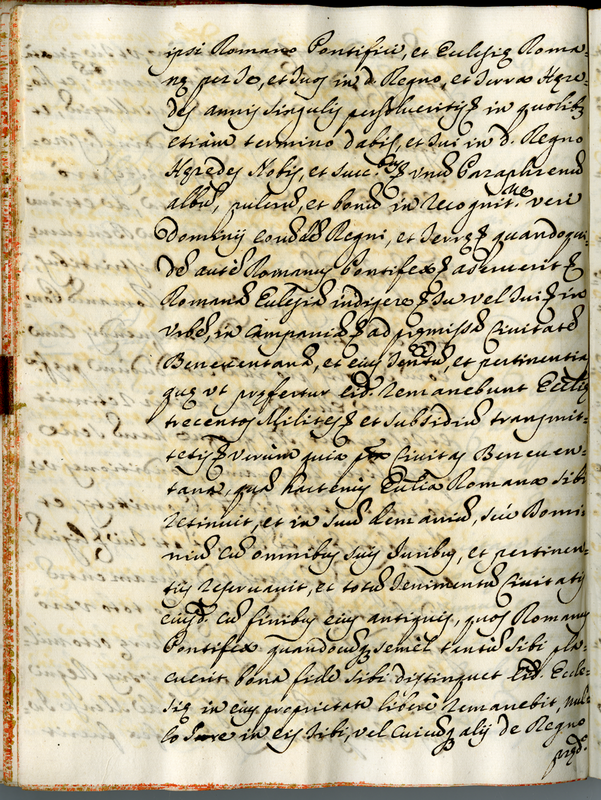 ipsi Romano Pontifici, et Eclesię Roma=
nę per te, et tuos in d. Regno, et Terra Hęre=
des annis singulis persolveritis in quolibet
etiam termino dabis, et tui in d. Regno
Hęredes Nobis, et Succ.ribus unũ Paraphrenũ
albũ, pulcrũ, et bonũ in recognit.ne veri
Dominij eorũdẽ Regni, et Terrę quandoqui
dẽ autẽ Romanus Pontifex asseruerit
Romanã Eclesiã indigere tu vel tui in
Urbẽ, in Campania ad pręmissã Civitatẽ
Beneventanã, et eius tentũ, et pertinentia
quę ut pręfertur eid. remanebunt Eccl͞ię
trecentos Milites et subsidiũ transmit=
tetis verum quia Civitas Beneven=
tana, quã hactenus Ecclia Romana sibi
retinuit, et in suũ demaniũ, seù Domi=
niũ cũ omnibus suis Juribus, et pertinen=
tijs reservavit, et totũ tenimentũ Civitatis
eiusd. cũ finibus eius antiquis, quos Romanus
Pontifex quandocũq; semel tantũ sibi pla=
cuerit bona fide sibi distinguet eid. Eccle=
się in eius proprietate liberè remanebit, nul=
lo Jure in eis tibi, vel cuicũq; alij de Regno
pręd.o